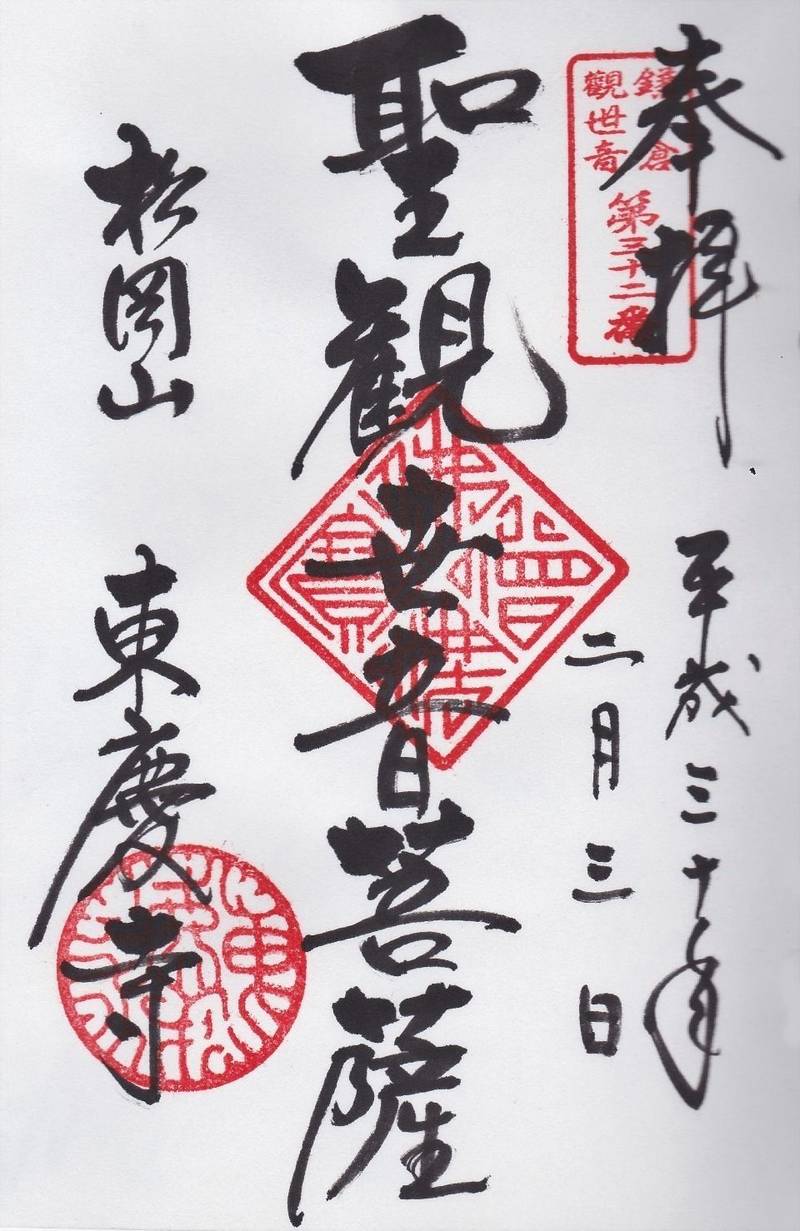 奉拝
平成三十年
二月三日
鎌倉
觀世音
第三十二番
聖觀世音菩薩
佛法僧寶
松岡山
東慶寺